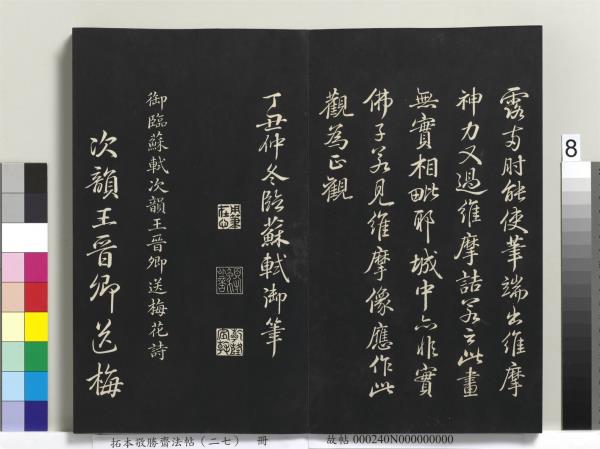 露兩肘能使筆端出維摩
神力又過維摩詰若云此畫
無實相毗耶城中亦非實
佛子若見維摩像應作此
觀為正觀
丁丑仲冬臨蘇軾御筆
乾隆宸翰
御臨蘇軾次韻王晉卿送梅花詩
次韻王晉卿送梅
8
拓本敬勝齋法帖(二七) 冊
故帖 000240N000000000